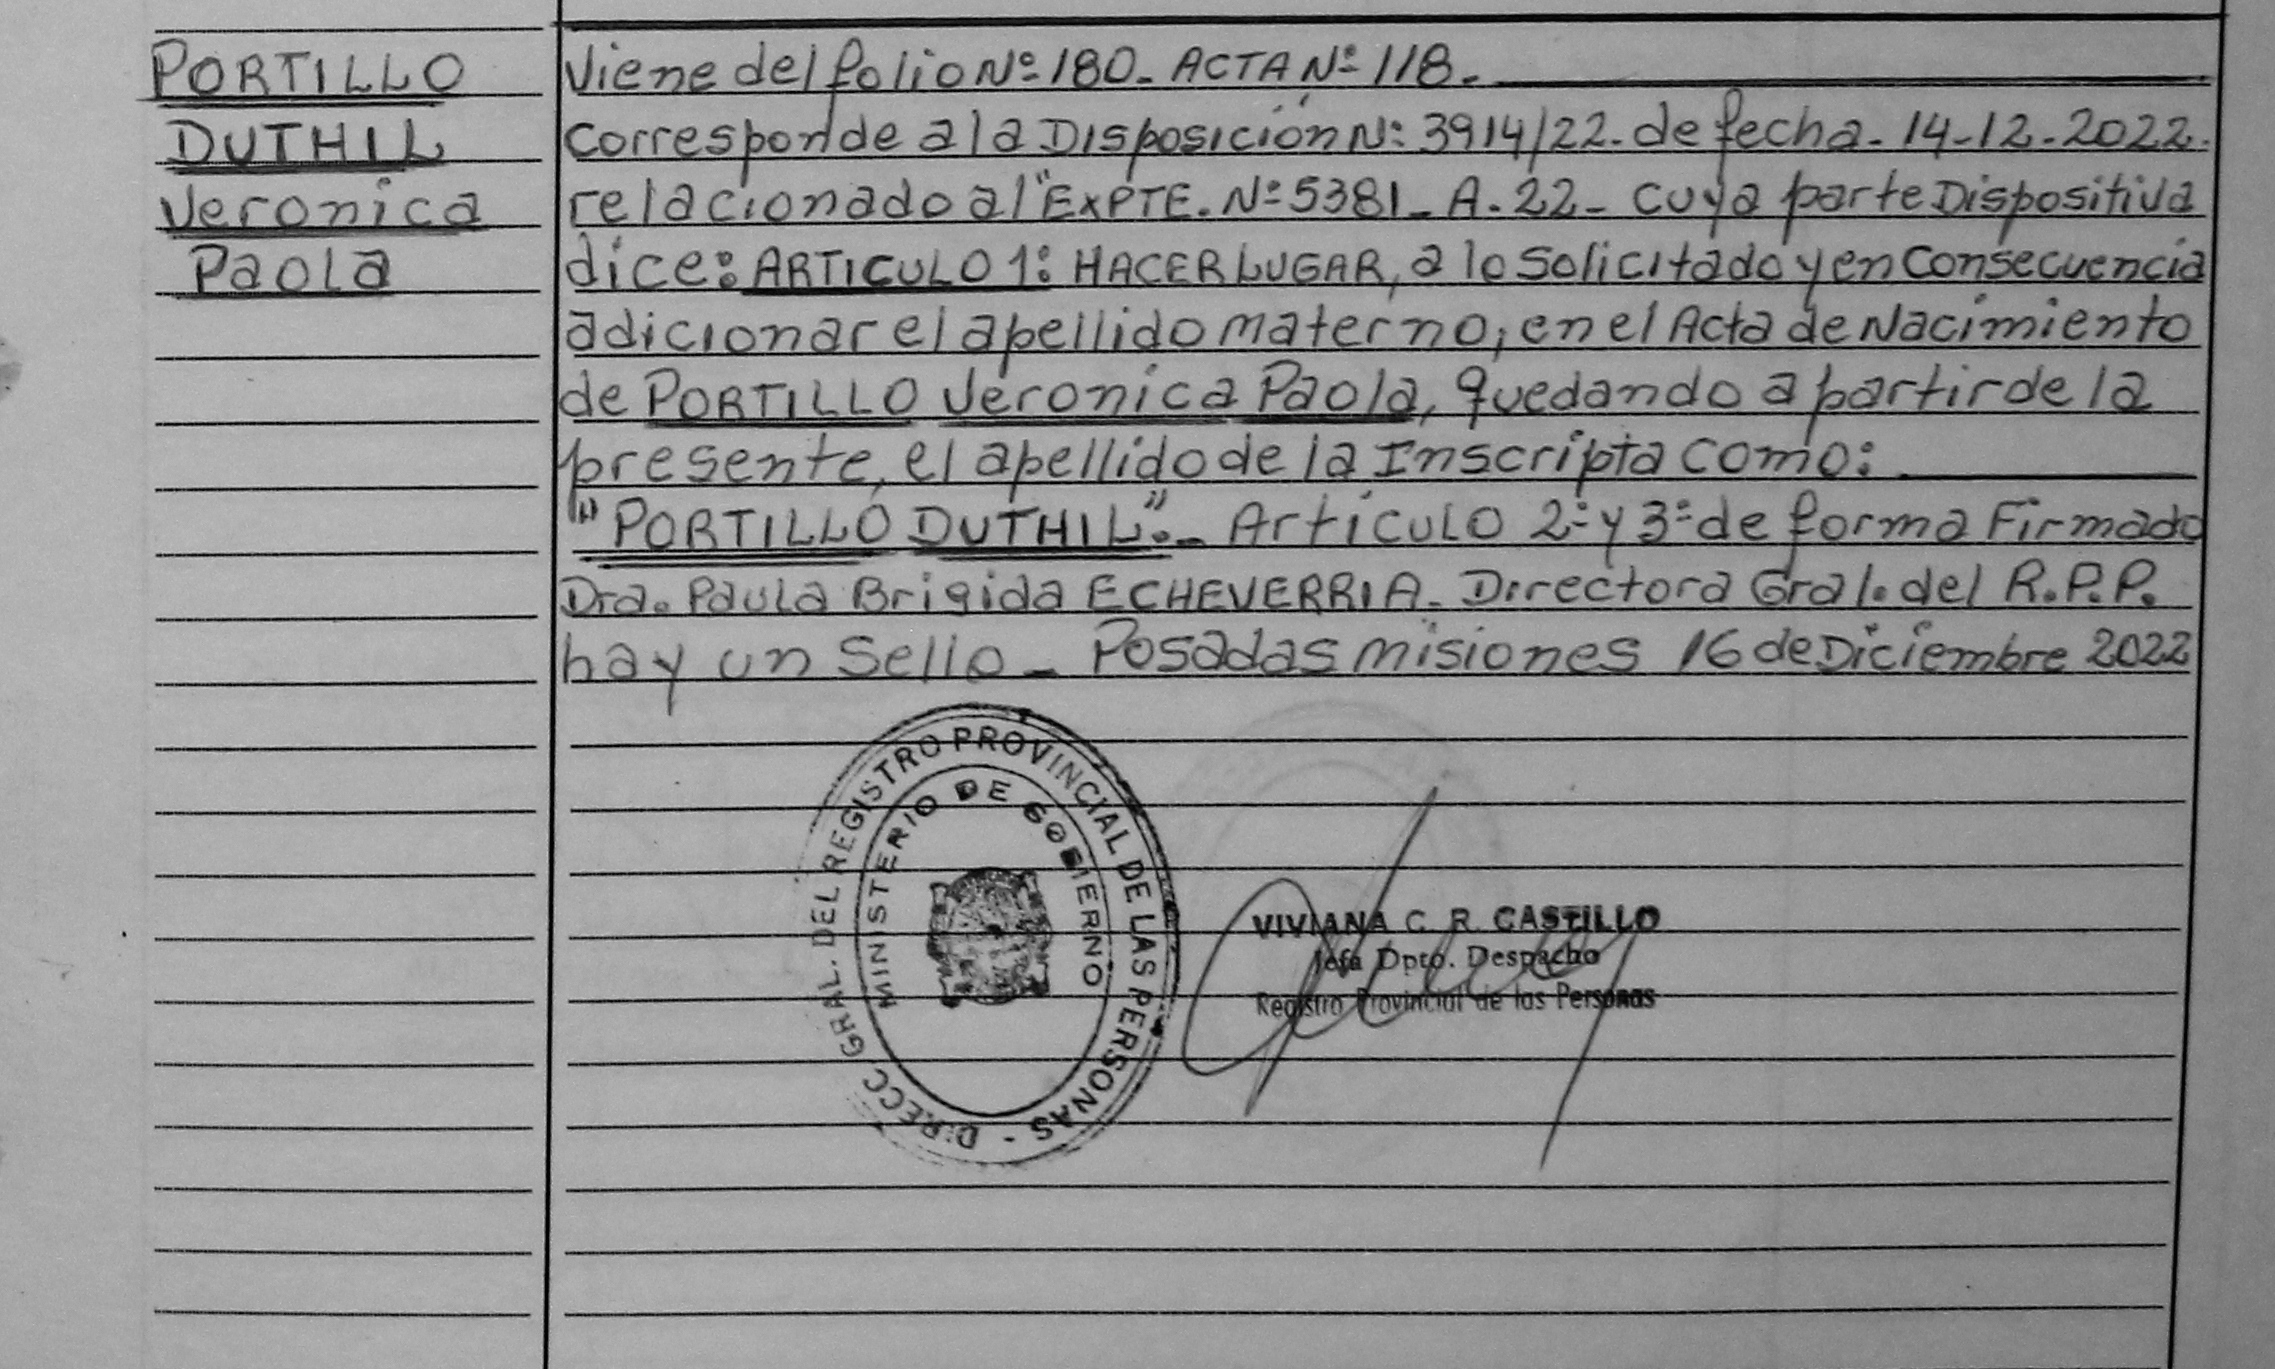 PORTILLO
DUTHIL
Veronica
Paola
Viene del folio Nº 180. ACTA Nº 118.
Corresponde a la DISPOSICIÓN Nº: 3914/22. de fecha. 14-12-2022.
relacionado al "EXPTE. Nº 5381_ A. 22_ cuya parte Dispositiva
dice: ARTICULO 1: HACER LUGAR, a lo Solicitado y en Consecuencia
adicionar el apellido materno, en el Acta de Nacimiento
de PORTILLO Veronica Paola, quedando a partir de la
presente, el apellido de la Inscripta como:
"PORTILLO DUTHIL"._ Artículo 2º y 3º de forma Firmado
Dra. Paula Brigida ECHEVERRIA. Directora Gral. del R.P.P.
hay un Sello _ Posadas misiones 16 de Diciembre 2022
DIRECC GRAL. DEL REGISTRO PROVINCIAL DE LAS PERSONAS -
MINISTERIO DE GOBIERNO
VIVIANA C. R. CASTILLO
Jefa Dpto. Despacho
Registro Provincial de las Personas